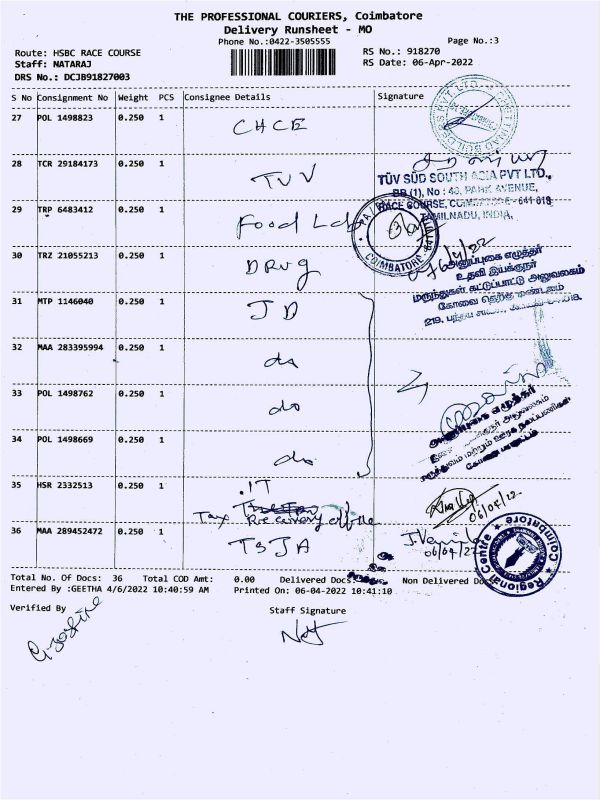 THE PROFESSIONAL COURIERS, Coimbatore
Delivery Runsheet - MO
Phone No.:0422-3505555
Page No.:3
Route: HSBC RACE COURSE
RS No.: 918270
Staff: NATARAJ
RS Date: 06-Apr-2022
DRS No.: DCJB91827003
S No Consignment No Weight PCS Consignee Details Signature
27 POL 1498823 0.250 1 CHCE
28 TCR 29184173 0.250 1 TUV
TÜV SÜD SOUTH ASIA PVT LTD.,
RACE COURSE, COIMBATORE - 641 018
TAMILNADU, INDIA,
29 TRP 6483412 0.250 1 Food Lab
COIMBATORE
30 TRZ 21055213 0.250 1 DRUG
அனுப்புகை எழுத்தர்
உதவி இயக்குநர்
மருந்துகள் கட்டுப்பாட்டு அலுவலகம்
கோவை தெற்கு மண்டலம்
31 MTP 1146040 0.250 1 JD
32 MAA 283395994 0.250 1 do
33 POL 1498762 0.250 1 do
34 POL 1498669 0.250 1 do
அனுப்புகை எழுத்தர்
35 HSR 2332513 0.250 1 IT
Tax Recovery office
06/04/22
36 MAA 289452472 0.250 1 TBJA
06/04/22
Regional Centre Coimbatore
Total No. Of Docs: 36 Total COD Amt: 0.00 Delivered Docs: Non Delivered Doc
Entered By :GEETHA 4/6/2022 10:40:59 AM Printed On: 06-04-2022 10:41:10
Verified By Staff Signature